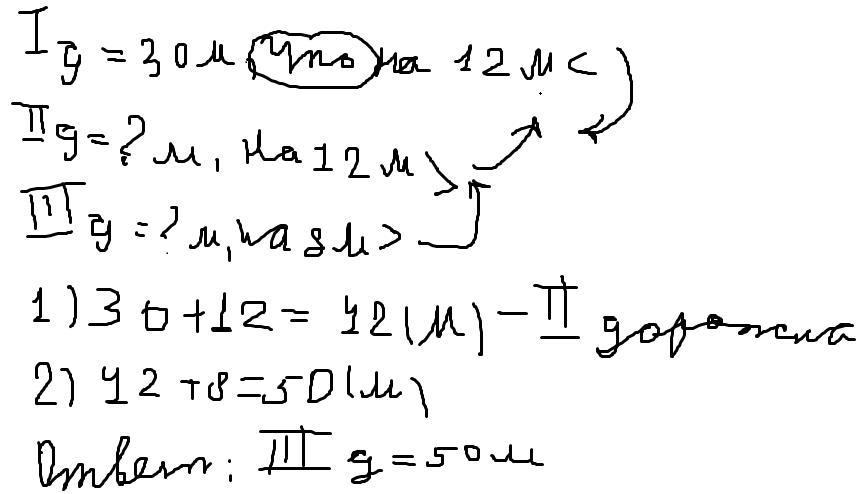 I д = 30 м что на 12 м <
II д = ? м, на 12 м >
III д = ? м, на 8 м >
1) 30 + 12 = 42 (м) - II дорожка
2) 42 + 8 = 50 (м)
Ответ: III д = 50 м